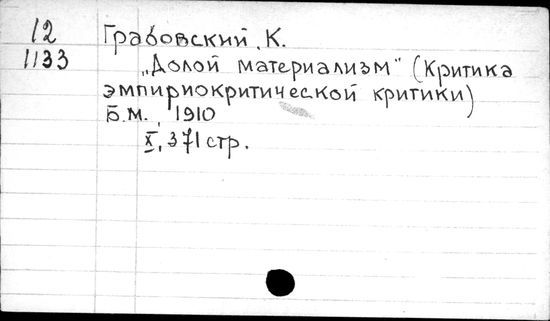 12 Грабовский, К.
1133 „Долой материализм" (Критика
эмпириокритической критики)
Б.м., 1910
X, 371 стр.